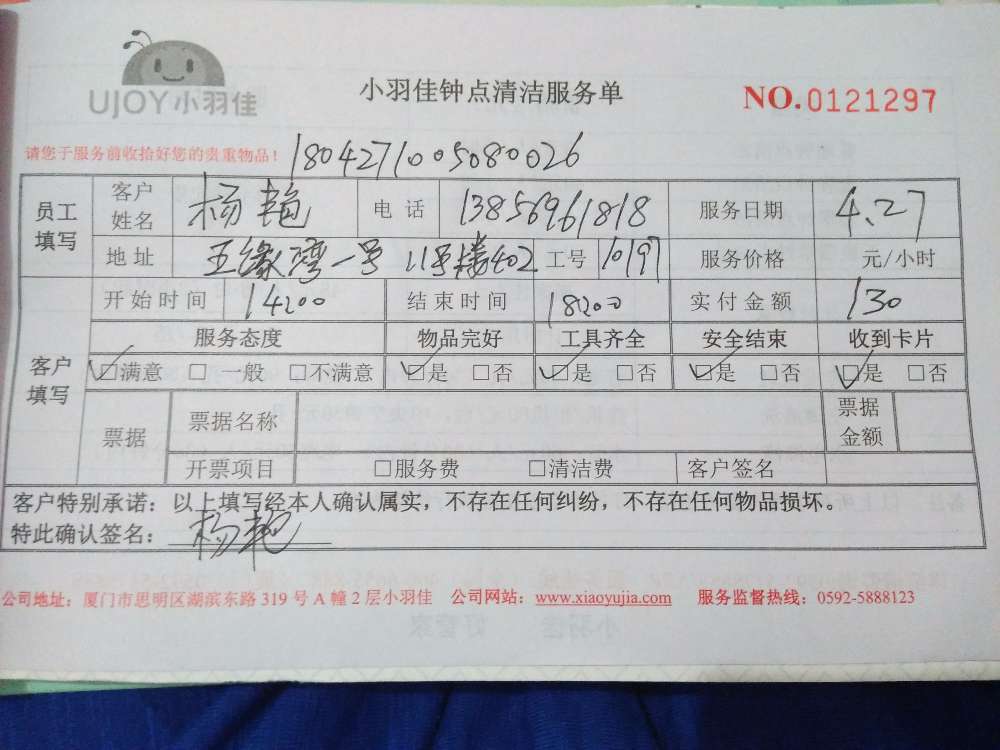 UJOY小羽佳
小羽佳钟点清洁服务单
NO.0121297
请您于服务前收拾好您的贵重物品！
1804271005080026
员工填写 客户姓名 杨艳 电话 13856961818 服务日期 4.27
地址 五缘湾一号 11号楼402 工号 10197 服务价格 元/小时
开始时间 14:00 结束时间 18:00 实付金额 130
客户填写 服务态度 物品完好 工具齐全 安全结束 收到卡片
☑满意 □一般 □不满意 ☑是 □否 ☑是 □否 ☑是 □否 ☑是 □否
票据 票据名称 票据金额
开票项目 □服务费 □清洁费 客户签名
客户特别承诺：以上填写经本人确认属实，不存在任何纠纷，不存在任何物品损坏。
特此确认签名：杨艳
公司地址：厦门市思明区湖滨东路 319 号 A 幢 2 层小羽佳 公司网站：www.xiaoyujia.com 服务监督热线：0592-5888123